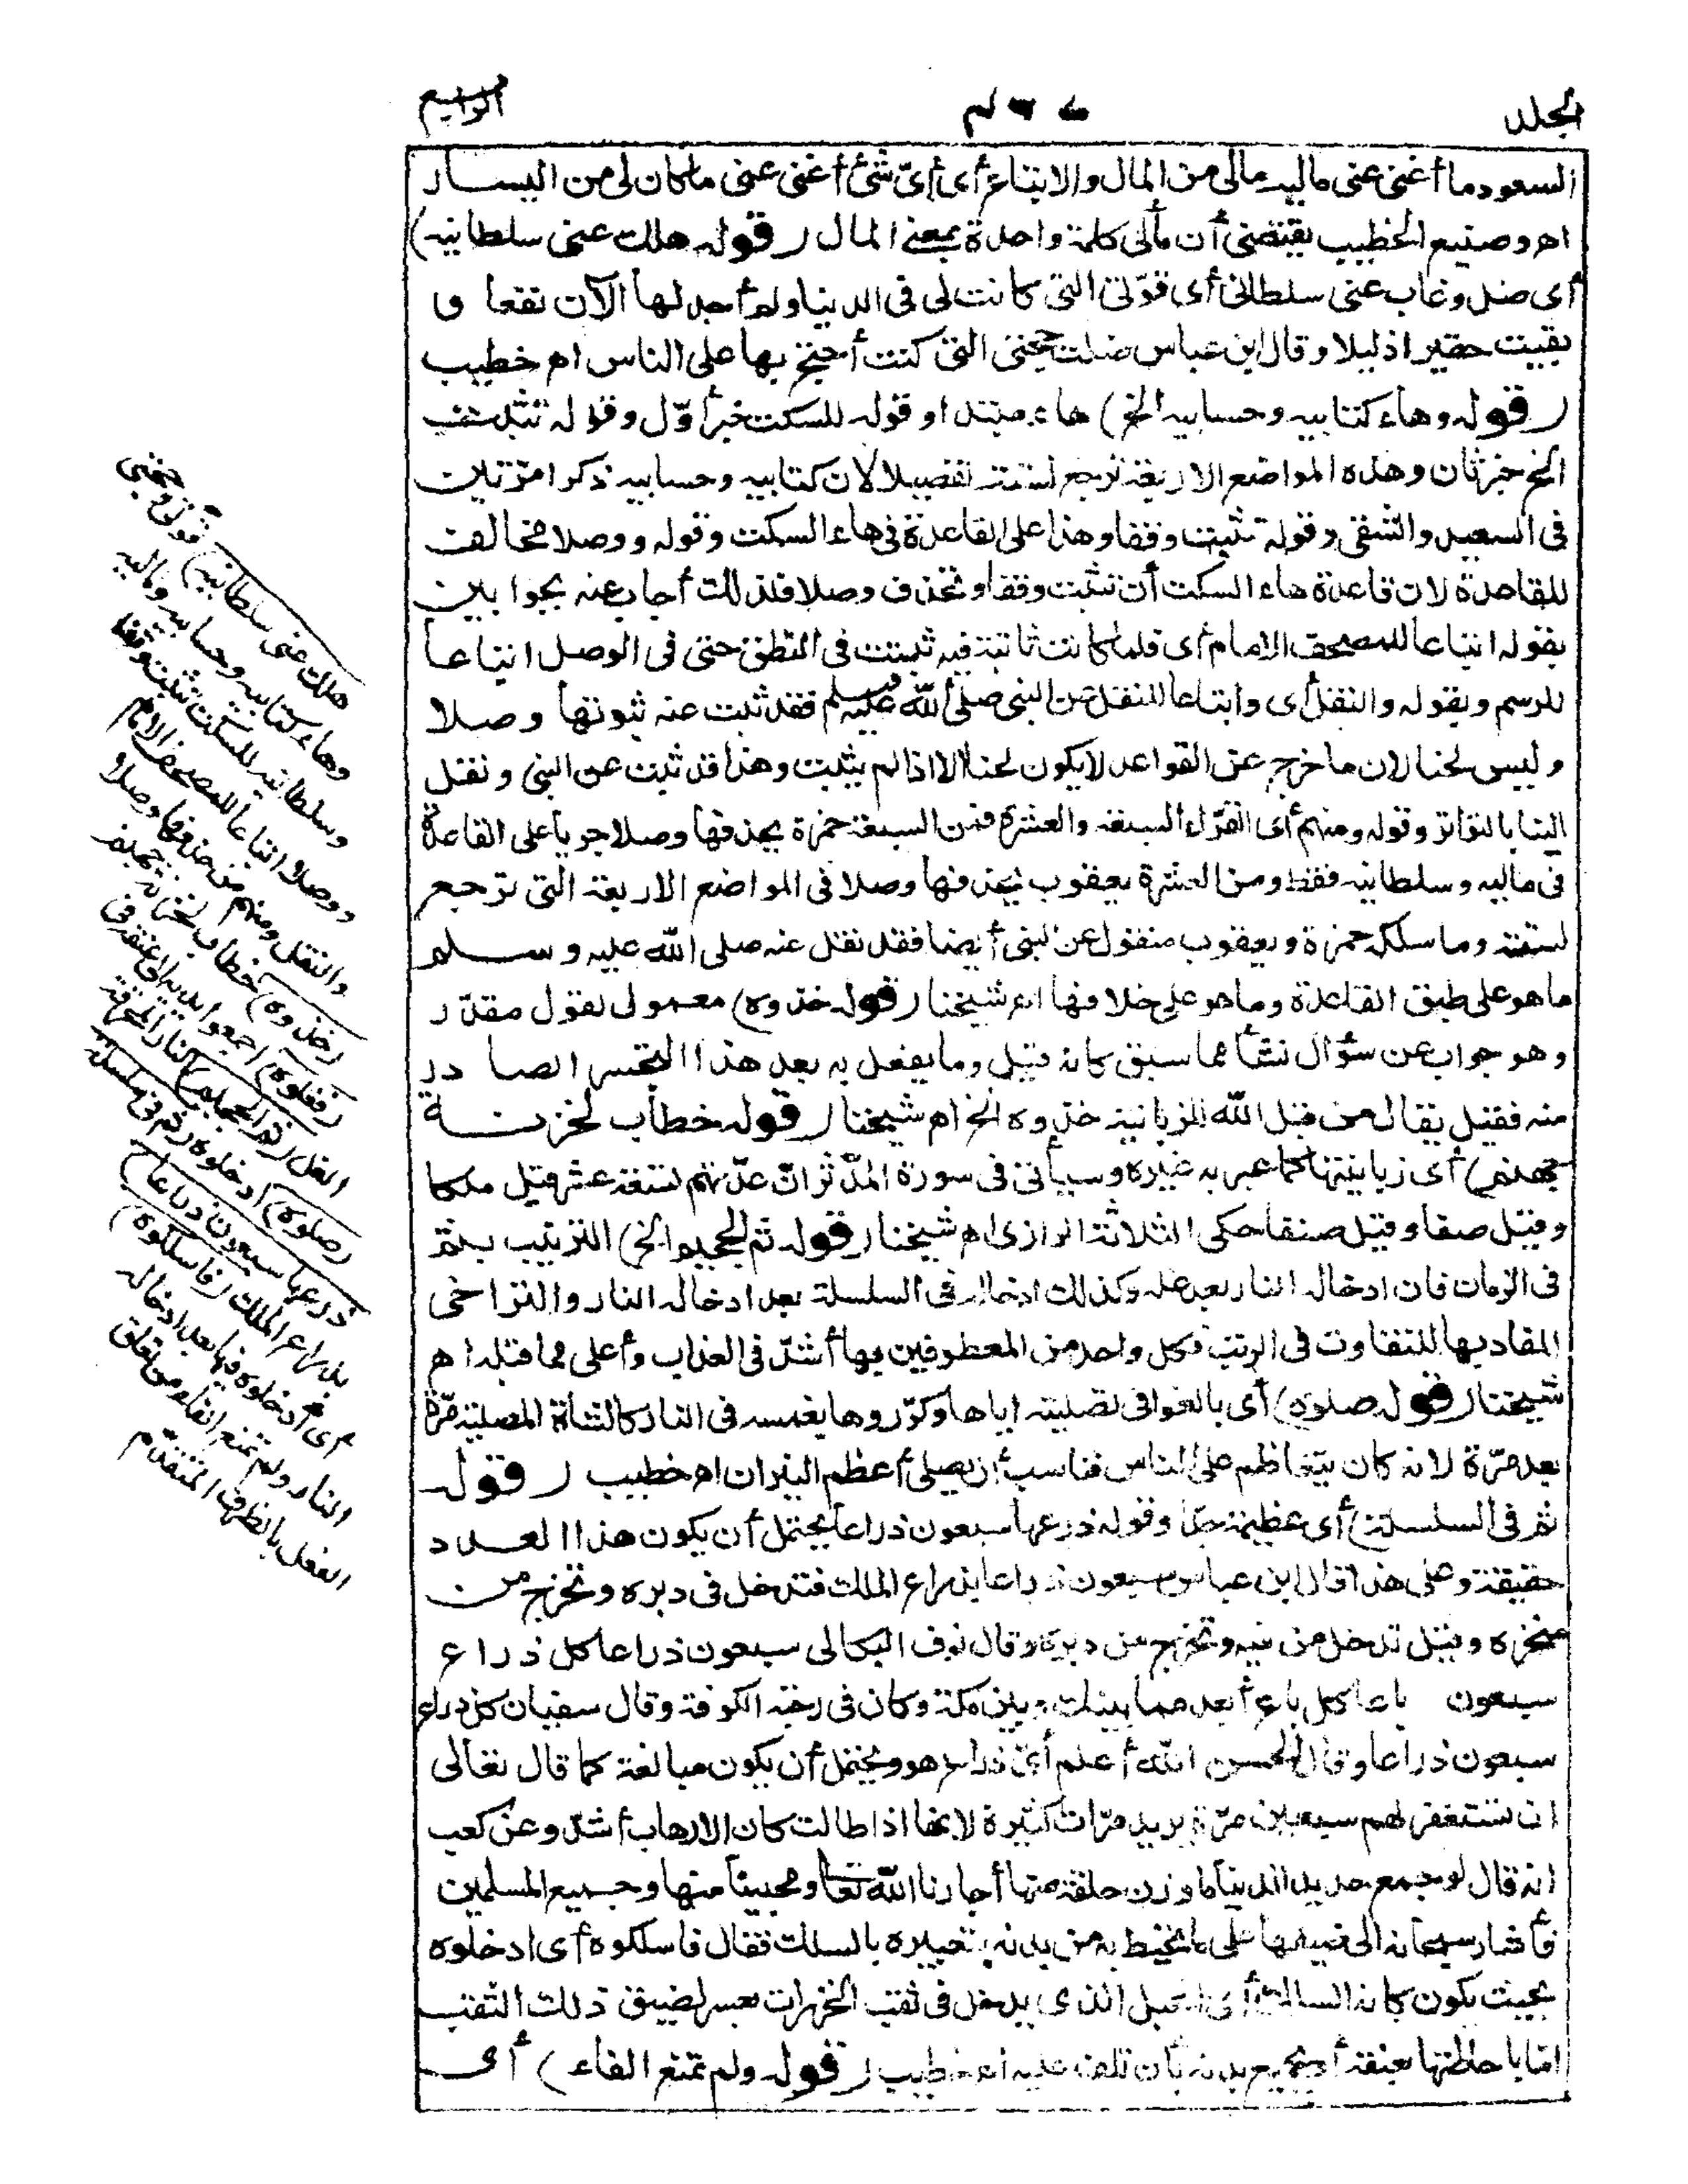 الجلد
الرابع
السعود ما أغنى عنى ماليه مالى من المال والاتباع أى أىّ شئ أغنى عنى ما كان لى من اليسار
اهـ وصنيع الخطيب يقتضى أن مالى كلمة واحدة بمعنى المال (قوله هلك عنى سلطانيه)
أى ضل وغاب عنى سلطانى أى قوّتى التى كانت لى فى الدنيا ولم أجد لها الآن نفعا و
بقيت حقيرا ذليلا وقال ابن عباس ضلت حجتى التى كنت أحتج بها على الناس اهـ خطيب
(قوله وهاء كتابيه وحسابيه الخ) هاء مبتدا وقوله للسكت خبر أوّل وقوله تثبت
الخ خبر ثان وهذه المواضع الاربعة ترجع لستة تفصيلا لان كتابيه وحسابيه ذكرا مرّتين
فى السعيد والشقى وقوله تثبت وقفا وهذا على القاعدة فى هاء السكت وقوله ووصلا مخالف
للقاعدة لان قاعدة هاء السكت أن تثبت وقفا وتحذف وصلا فلذلك أجاب عنه بجوابين
بقوله اتباعا للمصحف الامام أى فلما كانت ثابتة فيه ثبتت فى النطق حتى فى الوصل اتباعا
للرسم وبقوله والنقل أى واتباعا للنقل عن النبى صلى الله عليه وسلم فقد ثبت عنه ثبوتها وصلا
وليس لحنا لان ما خرج عن القواعد لا يكون لحنا الا اذا لم يثبت وهذا قد ثبت عن النبى ونقل
الينا بالتواتر وقوله ومنهم أى القرّاء السبعة والعشرة فمن السبعة حمزة بحذفها وصلا جريا على القاعدة
فى ماليه وسلطانيه فقط ومن العشرة يعقوب يحذفها وصلا فى المواضع الاربعة التى ترجع
لستة وما سلكه حمزة ويعقوب منقول عن النبى أيضا فقد نقل عنه صلى الله عليه وسلم
ما هو على طبق القاعدة وما هو على خلافها اهـ شيخنا (قوله خذوه) معمول لقول مقدّر
وهو جواب عن سؤال نشأ مما سبق كانه قيل وما يفعل به بعد هذا التحسر الصادر
منه فقيل يقال من قبل الله للزبانية خذوه الخ اهـ شيخنا (قوله خطاب لخزنة
جهنم) أى زبانيتها كما عبر به غيره وسيأتى فى سورة المدّثر انّ عدّتهم تسعة عشر قيل ملكا
وقيل صفا وقيل صنفا حكى الثلاثة الرازى اهـ شيخنا (قوله ثم الجحيم الخ) الترتيب بثم
فى الزمان فان ادخاله النار بعد غله وكذلك ادخاله فى السلسلة بعد ادخاله النار والتراخى
المفاد بها للتفاوت فى الرتبة فكل واحد من المعطوفين بها أشدّ فى العذاب وأعلى مما قبله اهـ
شيخنا (قوله صلوه) أى بالغوا فى تصليته اياها وكرّروها بغمسه فى النار كالشاة المصلية مرّة
بعد مرّة لانه كان يتعاظم على الناس فناسب أن يصلى أعظم النيران اهـ خطيب (قوله
ثم فى السلسلة) أى عظيمة جدّا وقوله ذرعها سبعون ذراعا يحتمل أن يكون هذا العدد
حقيقة وعلى هذا قال ابن عباس سبعون ذراعا بذراع الملك فتدخل فى دبره وتخرج من
منخره وقيل تدخل من فيه وتخرج من دبره وقال نوف البكالى سبعون ذراعا كل ذراع
سبعون باعا كل باع أبعد مما بينك وبين مكة وكان فى رحبة الكوفة وقال سفيان كل ذراع
سبعون ذراعا وقال الحسن الله أعلم أىّ ذراع هو ويحتمل أن يكون مبالغة كما قال تعالى
ان تستغفر لهم سبعين مرّة يريد مرّات كثيرة لانها اذا طالت كان الارهاب أشدّ وعن كعب
انه قال لو جمع حديد الدنيا ما وزن حلقة منها أجارنا الله تعالى ومحبينا منها وجميع المسلمين
فأشار سبحانه الى ضيقها على ما تحيط به من بدنه بتعبيره بالسلك فقال فاسلكوه أى ادخلوه
بحيث يكون كانه السلك أى الحبل الذى يدخل فى ثقب الخرزات بعسر لضيق ذلك الثقب
امّا باحاطتها بعنقه أو بجميع بدنه بأن تلف عليه اهـ خطيب (قوله ولم تمنع الفاء) أى
هلك عنى سلطانيه) قوّتى وحجتى
وهاء كتابيه وحسابيه وماليه
وسلطانيه للسكت تثبت وقفا
ووصلا اتباعا للمصحف الامام
والنقل ومنهم من حذفها وصلا
(خذوه) خطاب لخزنة جهنم
(فغلوه) اجمعوا يديه الى عنقه فى
الغل (ثم الجحيم) النار المحرقة
(صلوه) ادخلوه (ثم فى سلسلة
ذرعها سبعون ذراعا)
بذراع الملك (فاسلكوه)
أى أدخلوه فيها بعد ادخاله
النار ولم تمنع الفاء من تعلق
الفعل بالظرف المتقدّم